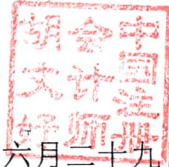 中國注册
会计师
胡文
六月二十九